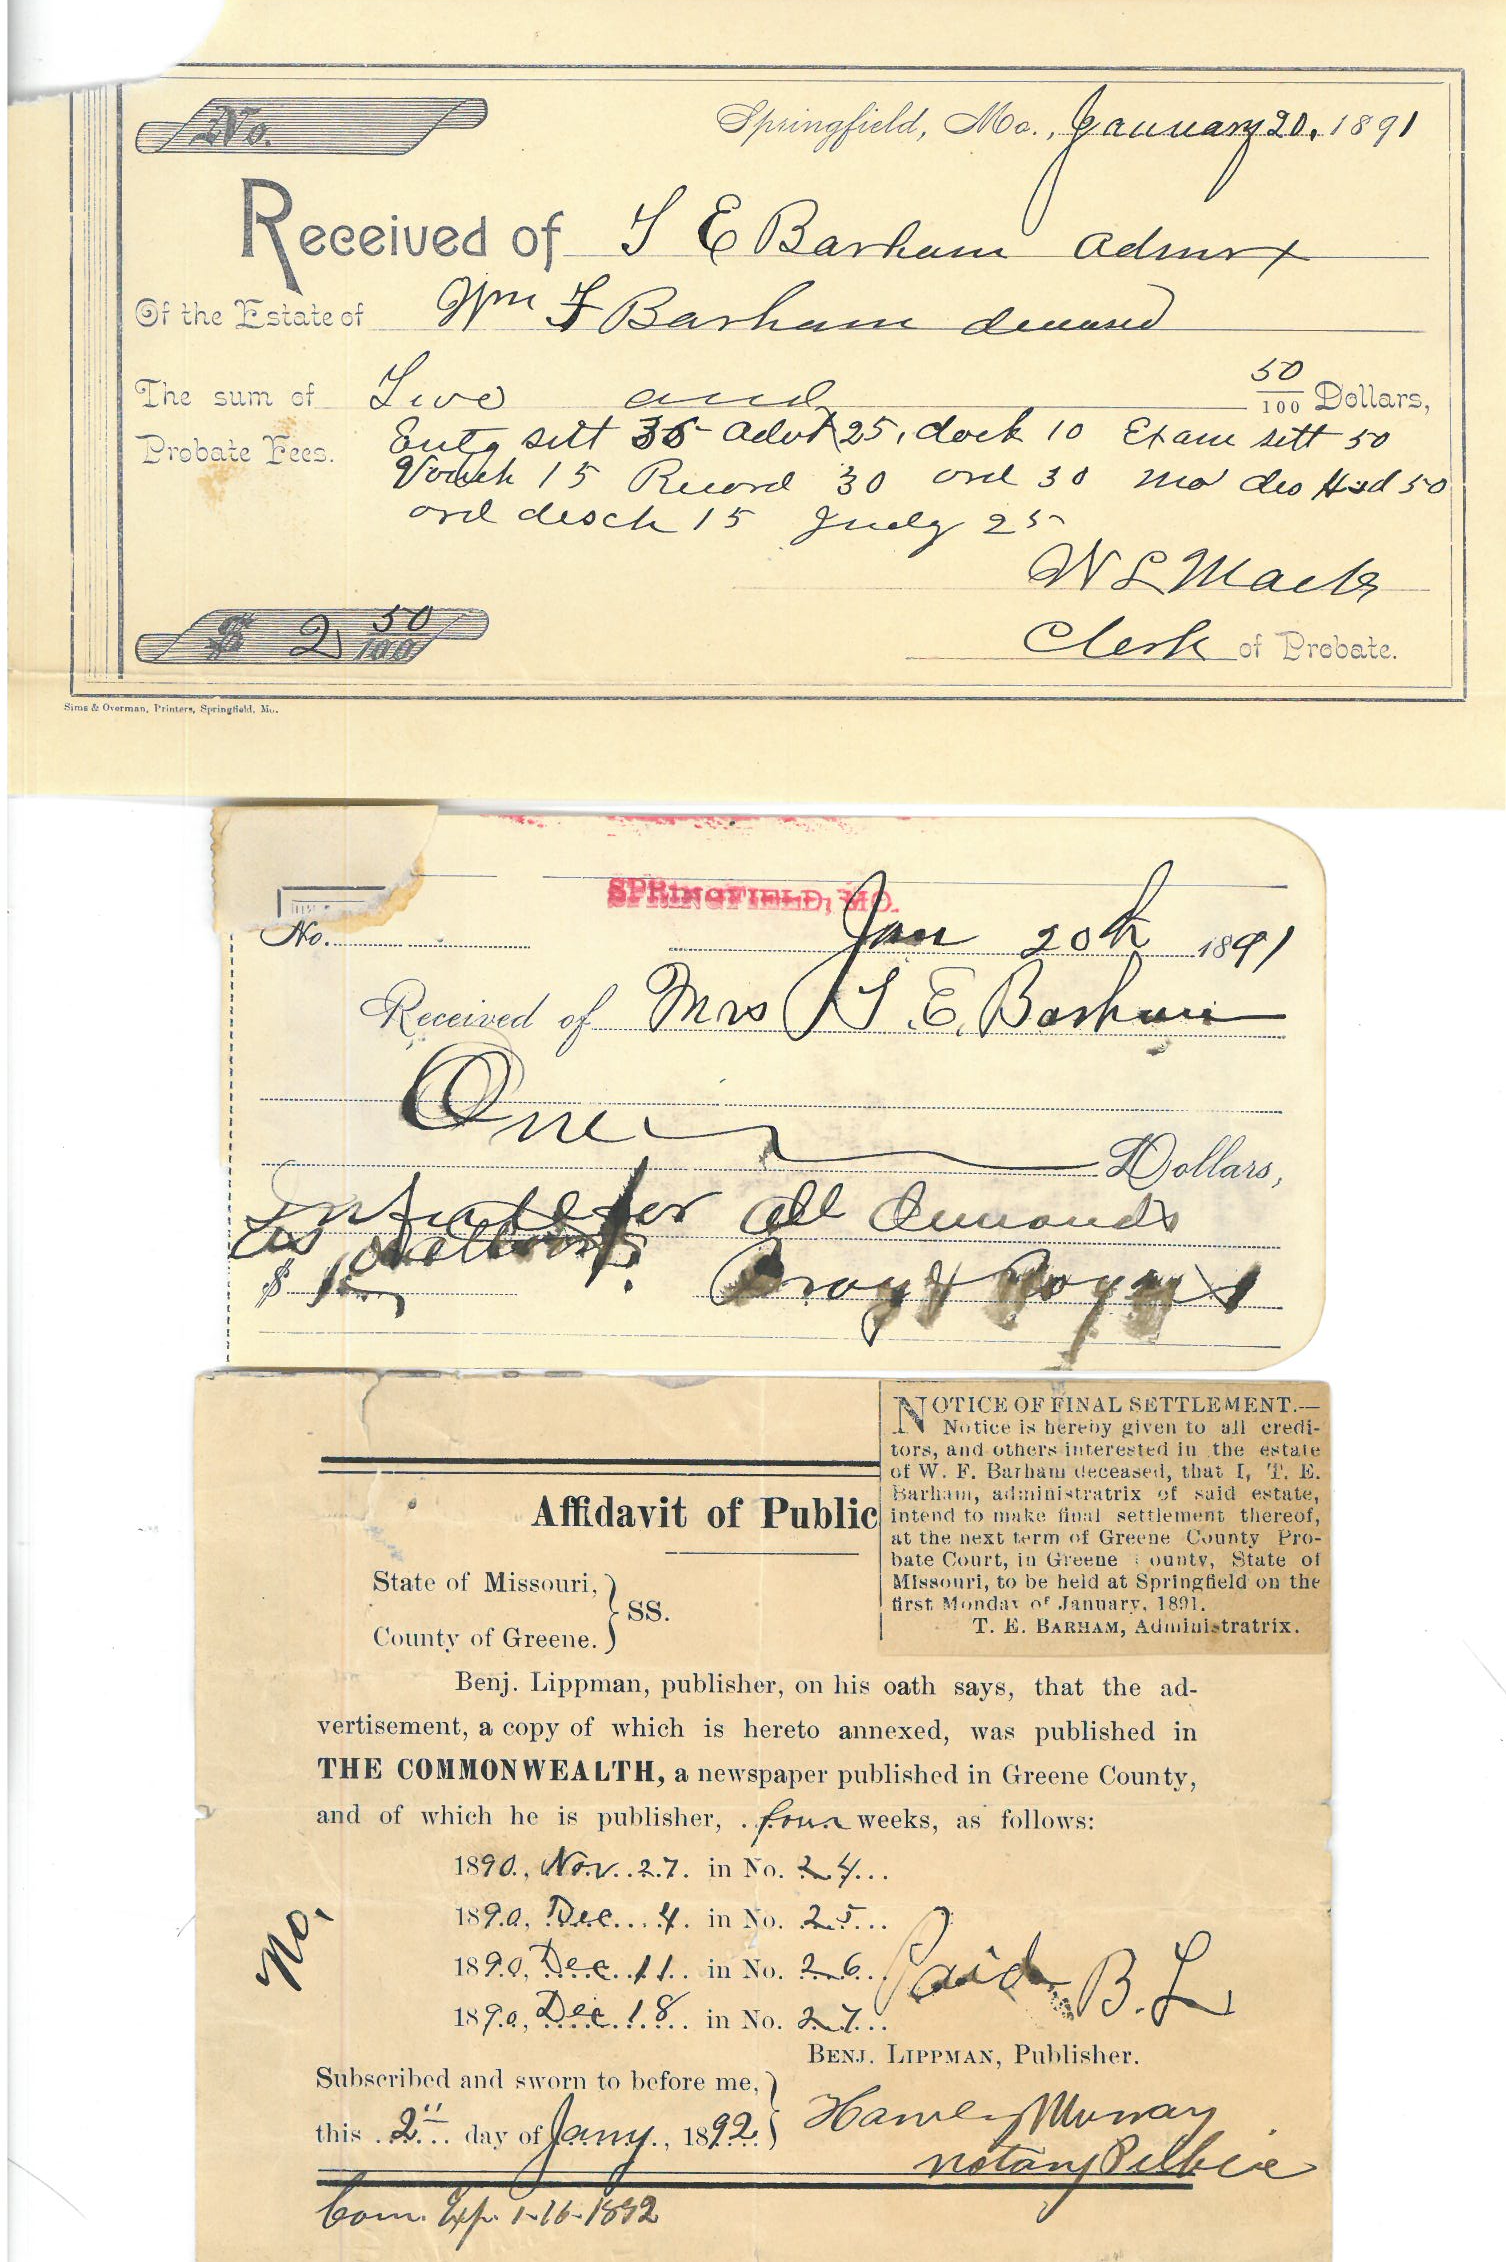 No.
Springfield, Mo., January 20, 1891
Received of T E Barham admrx
Of the Estate of Wm F Barham deceased
The sum of Two and 50/100 Dollars,
Probate Fees. Entg sett 35 advt 25, dock 10 Exam sett 50
Vouch 15 Record 30 ord 30 50
ord disch 15 25
W L Mack
$ 2 50/100
Clerk of Probate.
Sims & Overman, Printers, Springfield, Mo.
SPRINGFIELD, MO.
No. Jan 20th 1891
Received of Mrs T. E. Barham
One Dollars,
in full for all demands
as
$ 1
NOTICE OF FINAL SETTLEMENT.—
Notice is hereby given to all credi-
tors, and others interested in the estate
of W. F. Barham deceased, that I, T. E.
Barham, administratrix of said estate,
intend to make final settlement thereof,
at the next term of Greene County Pro-
bate Court, in Greene County, State of
Missouri, to be held at Springfield on the
first Monday of January, 1891.
T. E. BARHAM, Administratrix.
Affidavit of Public
State of Missouri,
County of Greene. } SS.
Benj. Lippman, publisher, on his oath says, that the ad-
vertisement, a copy of which is hereto annexed, was published in
THE COMMONWEALTH, a newspaper published in Greene County,
and of which he is publisher, four weeks, as follows:
1890, Nov. 27. in No. 24
1890, Dec. 4. in No. 25
1890, Dec. 11. in No. 26
1890, Dec 18. in No. 27
No.
Paid B. L
BENJ. LIPPMAN, Publisher.
Subscribed and sworn to before me,
this 2" day of Jany., 1892
Murray
Notary Public
Com. Exp. 1-16-1892